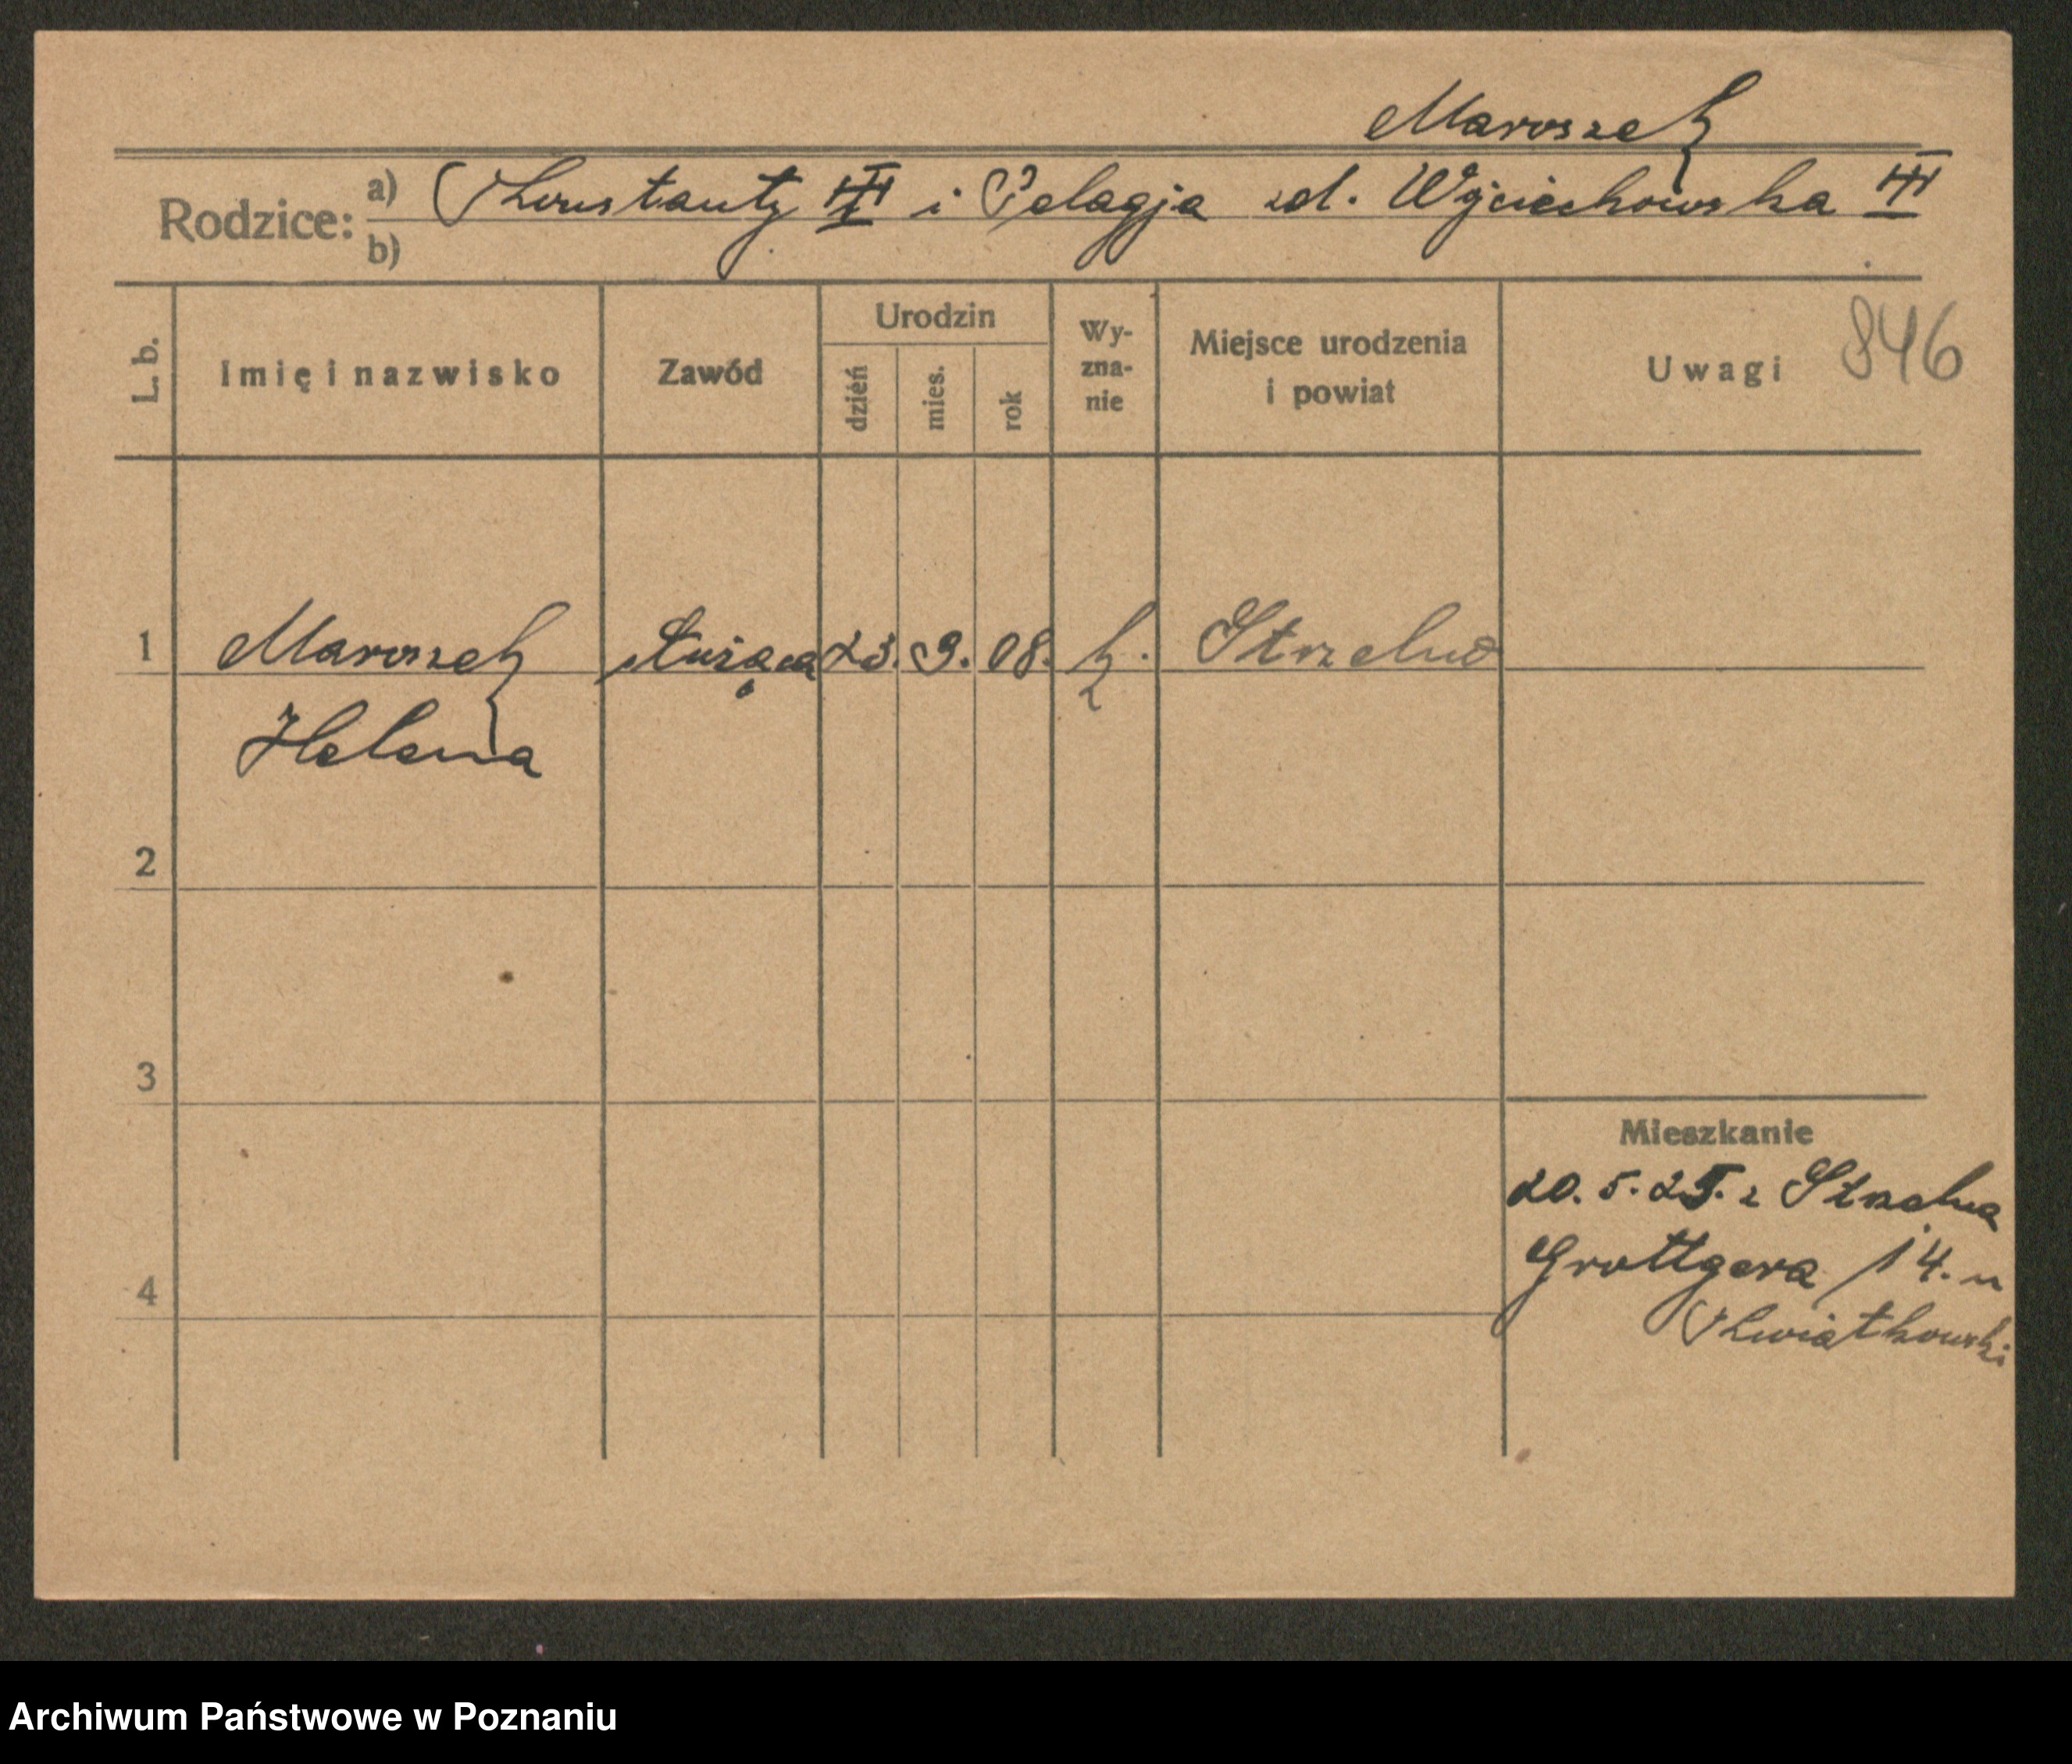 Maroszek
Rodzice: a) Konstanty i Pelagja zd. Wojciechowska
b)
L. b. Imię i nazwisko Zawód Urodzin dzień mies. rok Wyznanie Miejsce urodzenia i powiat Uwagi 846
1 Maroszek służąca 23. 9. 08. k. Strzelno
Helena
2
3
Mieszkanie
20. 5. 25. z Strzelna
Grottgera 14. u
4
Kwiatkowski
Archiwum Państwowe w Poznaniu